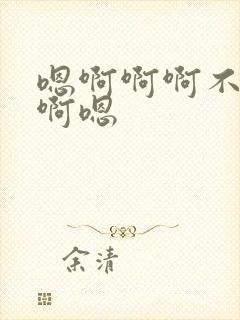 嗯啊啊啊不
啊嗯
余清